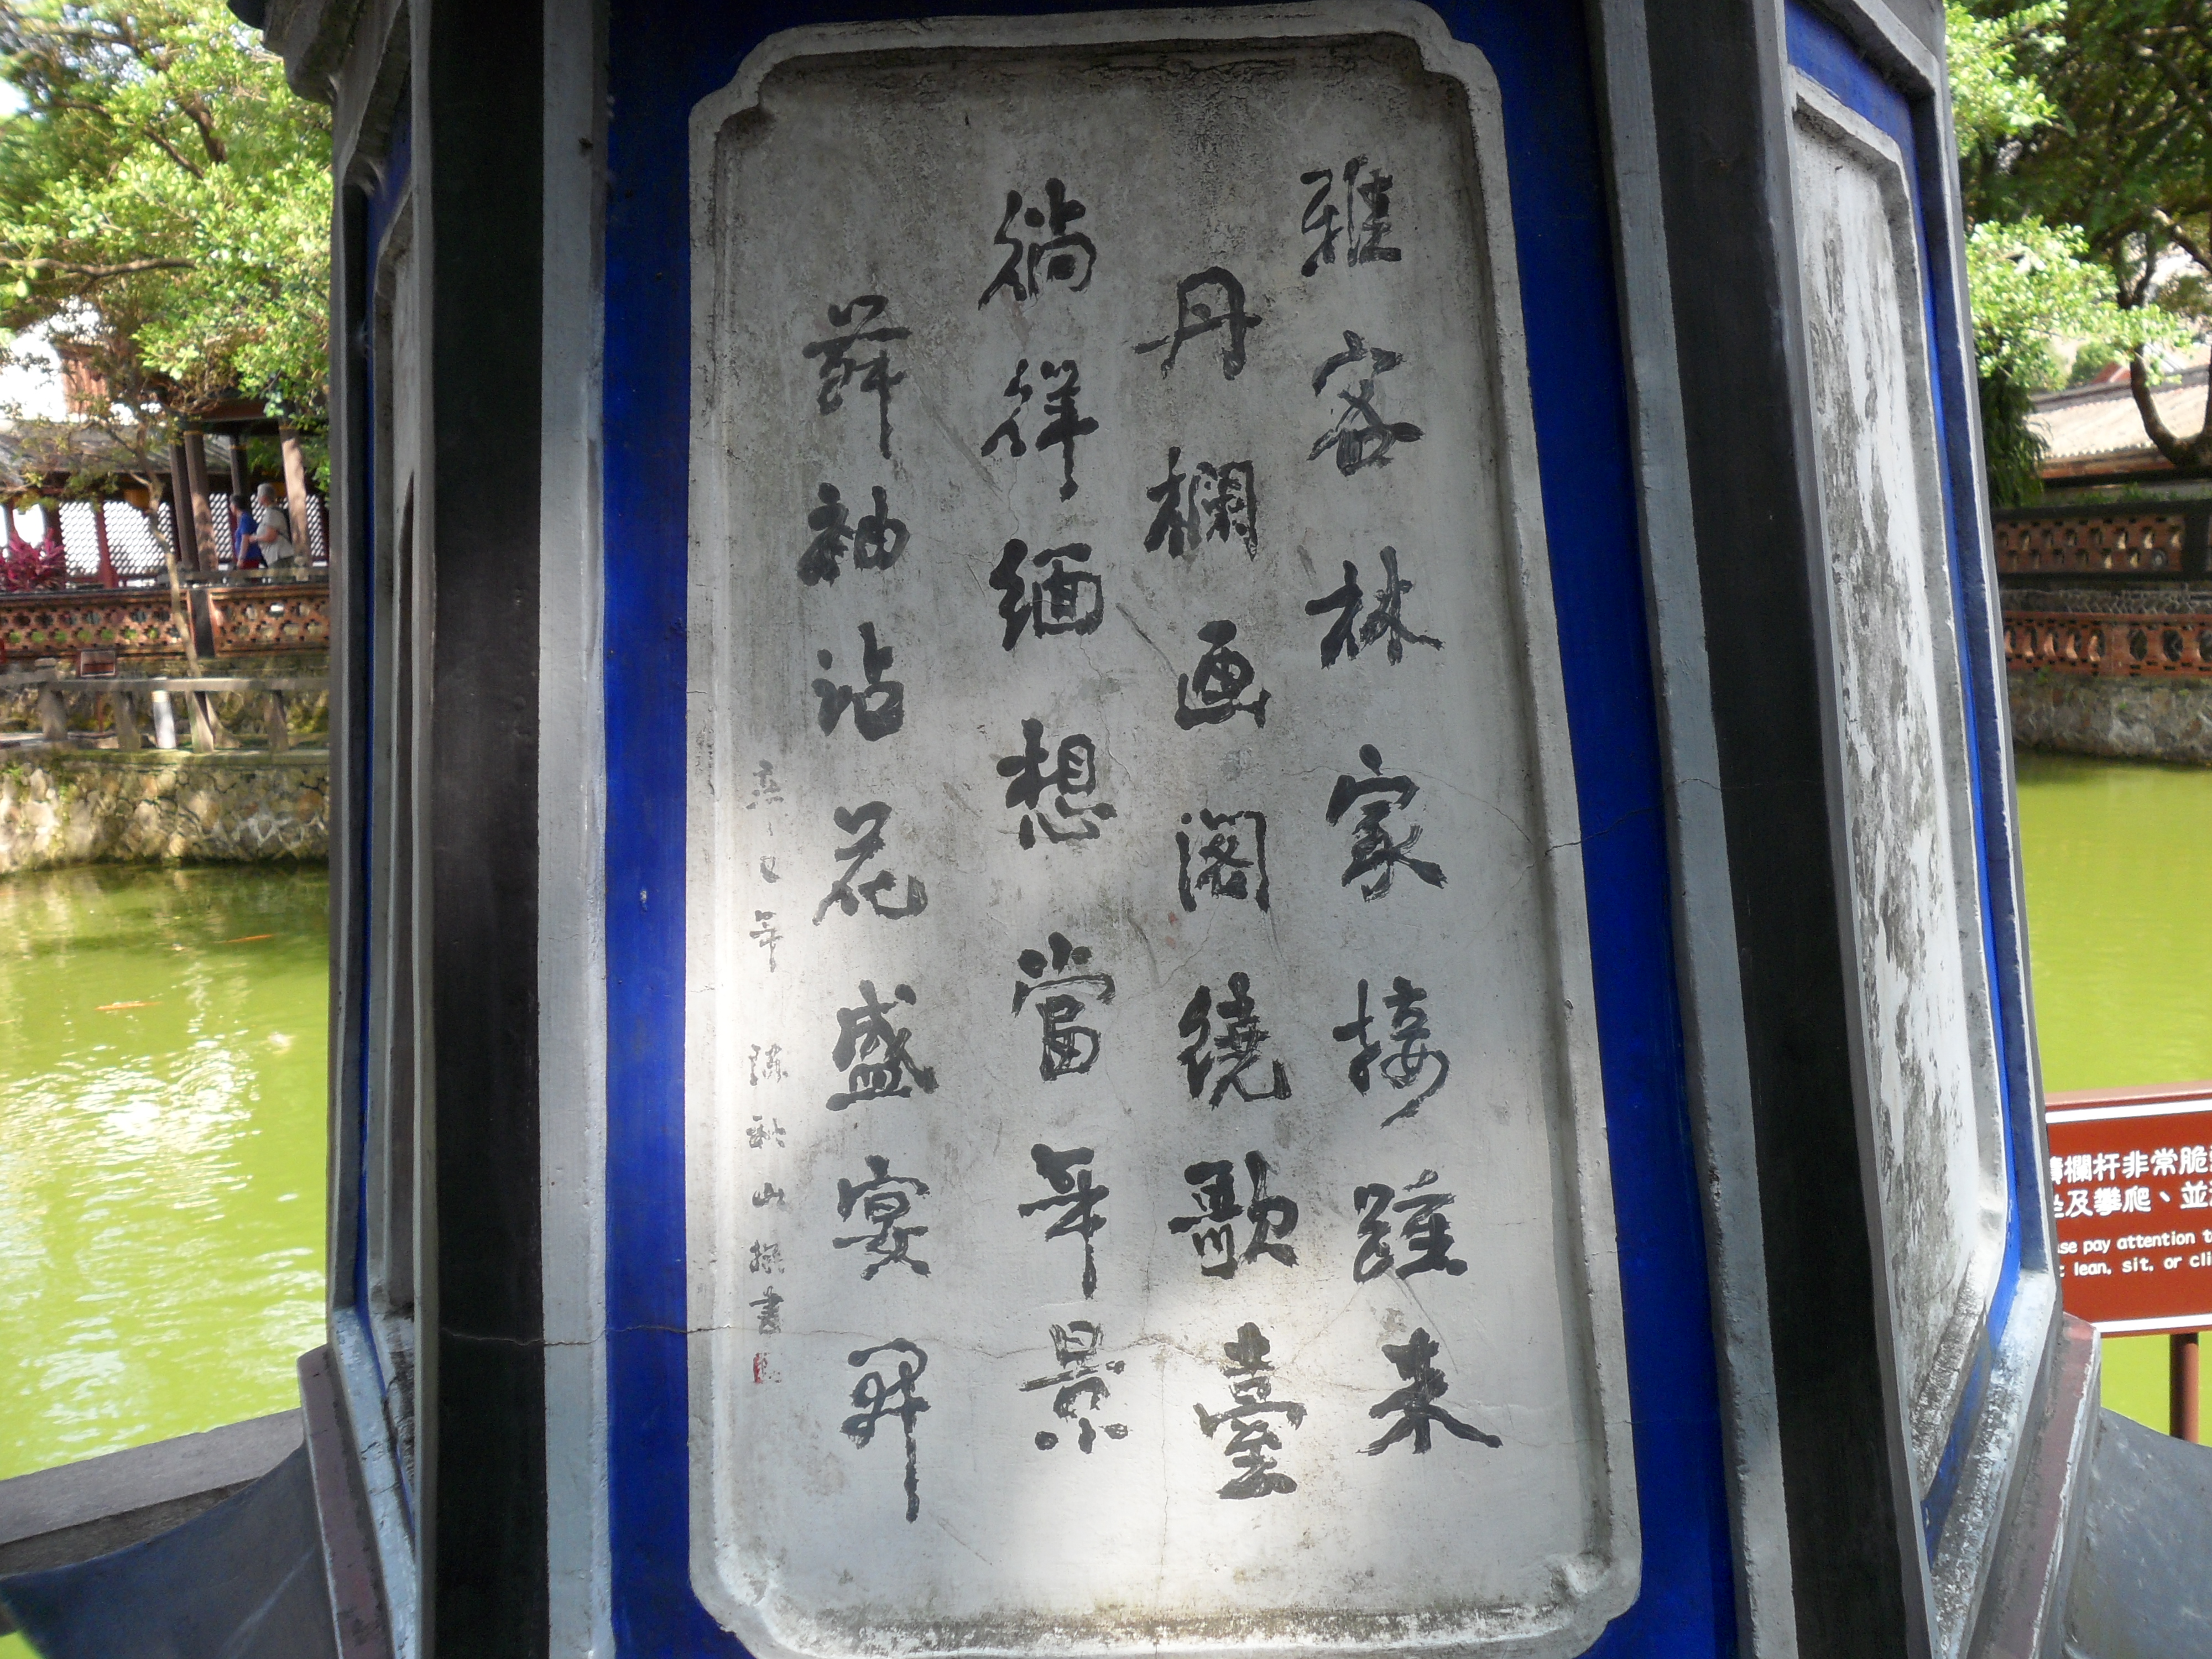 雅客林家接踵来
丹欄画閣繞歌臺
徜徉緬想當年景
舞袖沾花盛宴開
辛巳年 陳秋山撰書
欄杆非常脆
及攀爬、並
se pay attention t
lean, sit, or cli